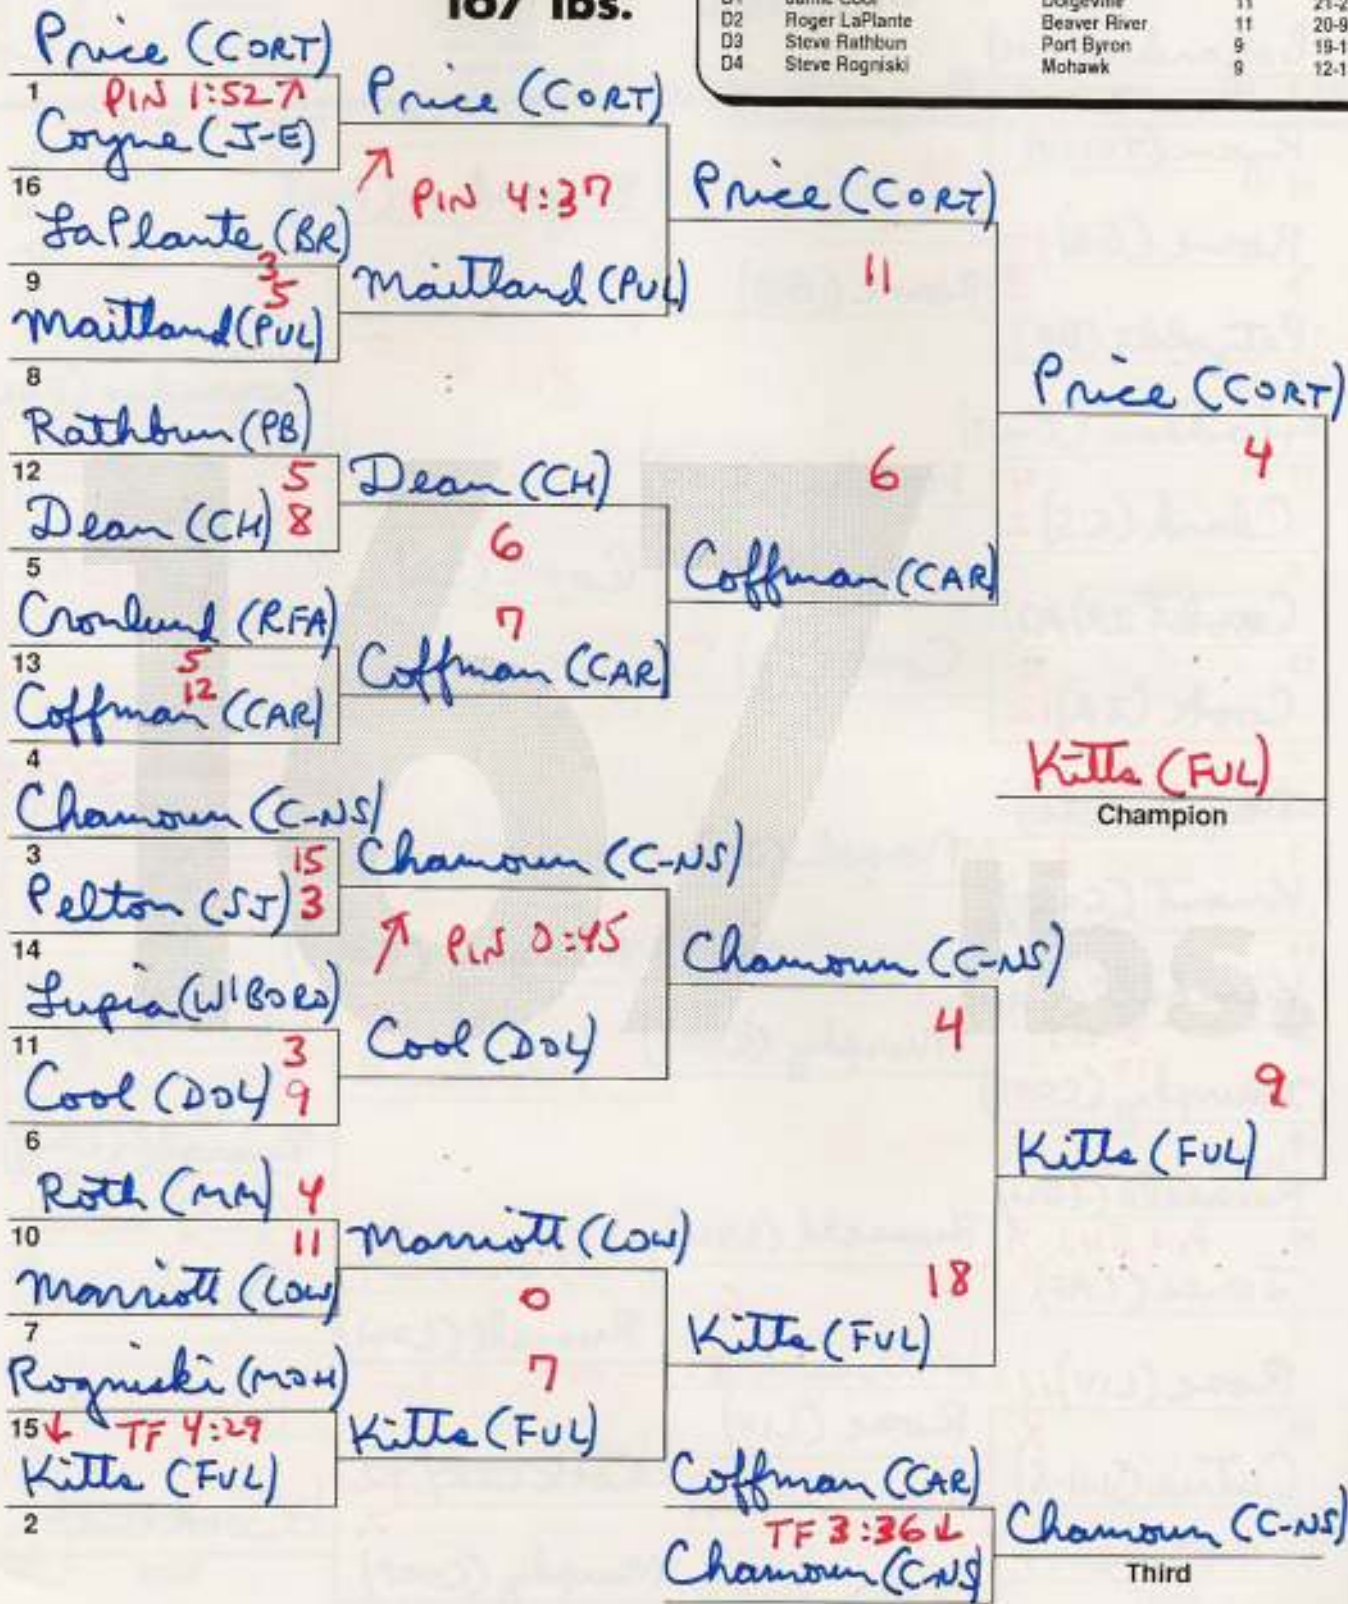 167 lbs.
D2 Roger LaPlante Beaver River 11 20-9
D3 Steve Rathbun Port Byron 9 19-1
D4 Steve Rogniski Mohawk 9 12-1
Price (CORT)
1
PIN 1:52 ↗
Coyne (J-E)
16
LaPlante (BR)
3
9
5
Maitland (PUL)
8
Rathbun (PB)
12
5
Dean (CH) 8
5
Cronlund (RFA)
13
5
12
Coffman (CAR)
4
Chamoun (C-NS)
3
15
Pelton (SJ) 3
14
Lupia (W'BORO)
11
3
Cool (DOL) 9
6
Roth (MM) 4
10
11
Marriott (LOW)
7
Rogniski (MOH)
15 ↓ TF 4:29
Kitts (FUL)
2
Price (CORT)
↗ PIN 4:37
Maitland (PUL)
Dean (CH)
6
7
Coffman (CAR)
Chamoun (C-NS)
↗ PIN 0:45
Cool (DOL)
Marriott (LOW)
0
7
Kitts (FUL)
Price (CORT)
11
6
Coffman (CAR)
Chamoun (C-NS)
4
18
Kitts (FUL)
Price (CORT)
4
9
Kitts (FUL)
Kitts (FUL)
Champion
Coffman (CAR)
TF 3:36 ↓
Chamoun (CNS)
Chamoun (C-NS)
Third